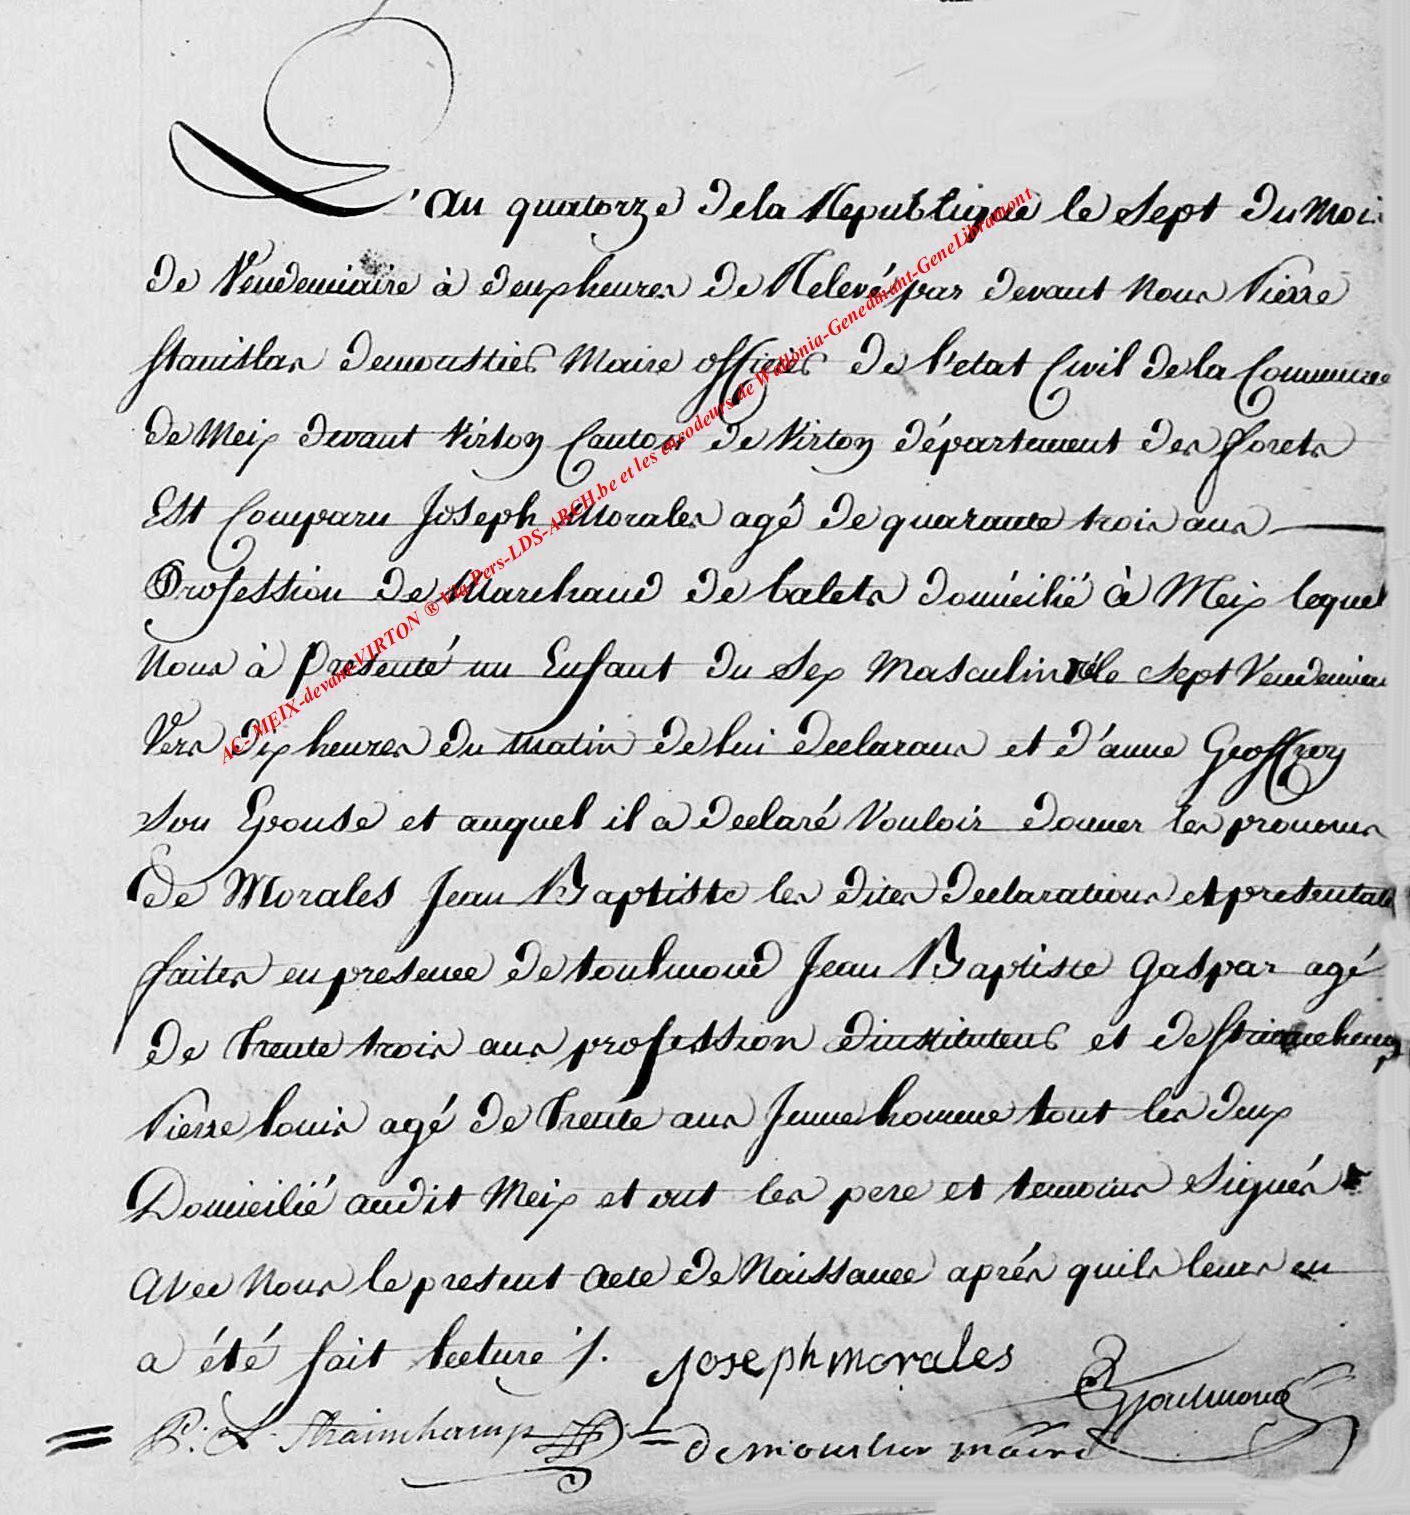 L'an quatorze de la Republique le sept du mois
de Vendemiaire à deux heures de Relevé par devant Nous Pierre
stanislas demoustier Maire officier de l'etat Civil de la Commune
de Meix devant Virton Canton de Virton département des forets
Est Comparu Joseph Morales agé de quarante trois ans
Profession de Marchand de balets domicilié à Meix lequel
Nous à Presenté un Enfant du sex Masculin né le sept Vendemiaire
Vers dix heures du matin de lui declarans et d'anne Geoffroy
son Epouse et auquel il a declaré Vouloir donner les pronoms
de Morales Jean Baptiste les dites declarations et presentation
faites en presence de toulmond Jean Baptiste Gaspar agé
de trente trois ans profession dinstituteur et de strainchamp
Pierre louis agé de trente ans Jeune homme tout les deux
Domicilié audit Meix et ont les pere et temoins signés
avec Nous le present acte de Naissance après quils leurs en
a été fait lecture ./.
Joseph morales
Toulmond
P. L. Strainchamp
demoustier maire
AC- MEIX-devant-VIRTON ® via Pers-LDS-ARCH.be et les encodeurs de Wallonia-Genedinant-GeneLibramont